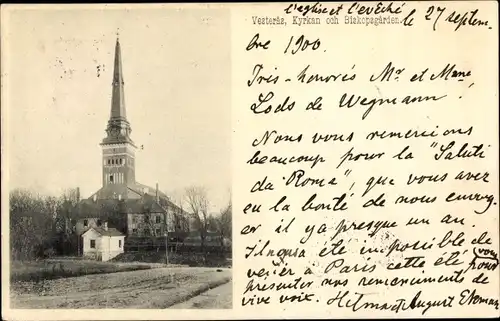 l'église et l'évêché
Vesterås, Kyrkan och Biskopsgården.
le 27 septem-
bre 1900.
Très-honorés Mr et Mme
Lods de Wegmann!
Nous vous remercions
beaucoup pour la "Saluti
da Roma", que vous avez
eu la bonté de nous envoy-
er il ya presque un an.
Il nous a été impossible de
venir à Paris cette été pour vous
présenter nos remerciments de
vive voix. Hilma et August